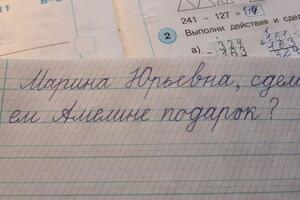 241 - 127 = 114
2 Выполни действия и сде
а)
Марина Юрьевна, сдела
ем Амелине подарок?